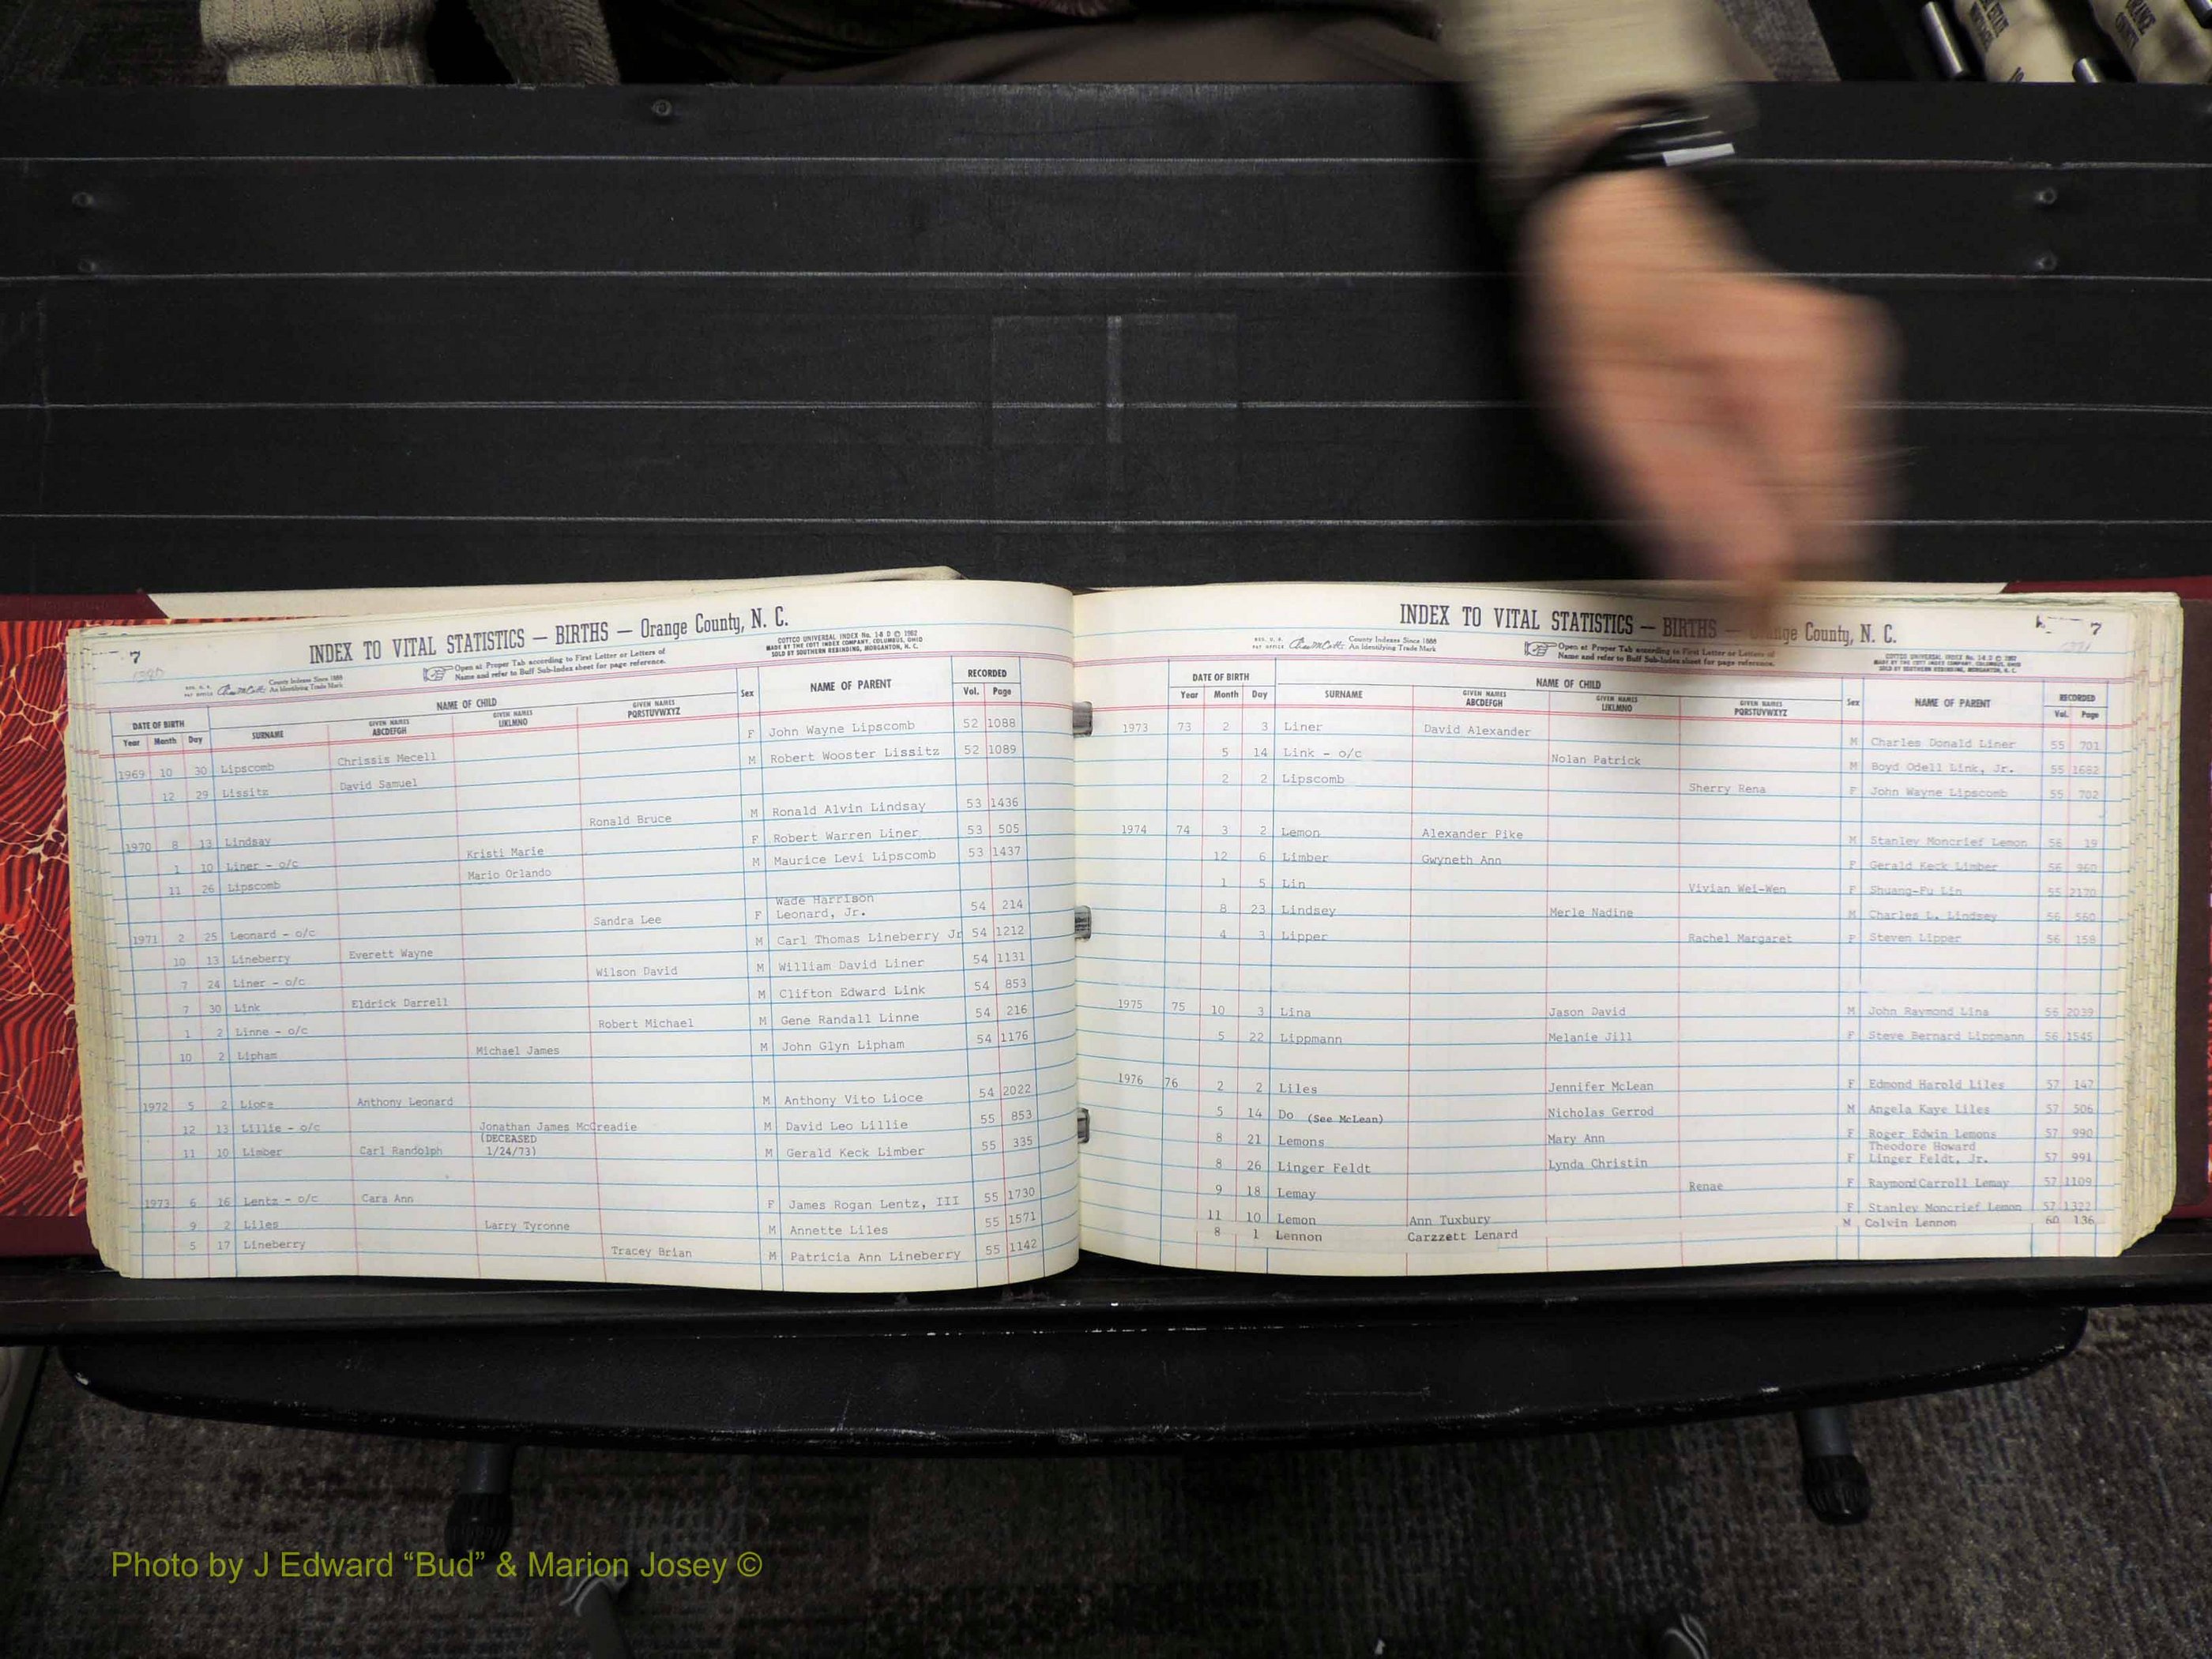 7
INDEX TO VITAL STATISTICS — BIRTHS — Orange County, N. C.
COTTCO UNIVERSAL INDEX No. 14 D © 1962
MADE BY THE COTT INDEX COMPANY, COLUMBUS, OHIO
SOLD BY SOUTHERN REBINDING, MORGANTON, N. C.
County Indexes Since 1888
An Identifying Trade Mark
Open at Proper Tab according to First Letter or Letters of
Name and refer to Buff Sub-Index sheet for page reference.
DATE OF BIRTH NAME OF CHILD Sex NAME OF PARENT RECORDED
Year Month Day SURNAME GIVEN NAMES ABCDEFGH GIVEN NAMES IJKLMNO GIVEN NAMES PQRSTUVWXYZ Vol. Page
1969 10 30 Lipscomb Chrissis Mecell F John Wayne Lipscomb 52 1088
12 29 Lissitz David Samuel M Robert Wooster Lissitz 52 1089
1970 8 13 Lindsay Ronald Bruce M Ronald Alvin Lindsay 53 1436
1 10 Liner - o/c Kristi Marie F Robert Warren Liner 53 505
11 26 Lipscomb Mario Orlando M Maurice Levi Lipscomb 53 1437
1971 2 25 Leonard - o/c Sandra Lee F Wade Harrison Leonard, Jr. 54 214
10 13 Lineberry Everett Wayne M Carl Thomas Lineberry Jr 54 1212
7 24 Liner - o/c Wilson David M William David Liner 54 1131
7 30 Link Eldrick Darrell M Clifton Edward Link 54 853
1 2 Linne - o/c Robert Michael M Gene Randall Linne 54 216
10 2 Lipham Michael James M John Glyn Lipham 54 1176
1972 5 2 Lioce Anthony Leonard M Anthony Vito Lioce 54 2022
12 13 Lillie - o/c Jonathan James McCreadie M David Leo Lillie 55 853
11 10 Limber Carl Randolph (DECEASED 1/24/73) M Gerald Keck Limber 55 335
1973 6 16 Lentz - o/c Cara Ann F James Rogan Lentz, III 55 1730
9 2 Liles Larry Tyronne M Annette Liles 55 1571
5 17 Lineberry Tracey Brian M Patricia Ann Lineberry 55 1142
7
INDEX TO VITAL STATISTICS — BIRTHS — Orange County, N. C.
County Indexes Since 1888
An Identifying Trade Mark
Open at Proper Tab according to First Letter or Letters of
Name and refer to Buff Sub-Index sheet for page reference.
COTTCO UNIVERSAL INDEX No. 14 D © 1962
MADE BY THE COTT INDEX COMPANY, COLUMBUS, OHIO
SOLD BY SOUTHERN REBINDING, MORGANTON, N. C.
DATE OF BIRTH NAME OF CHILD Sex NAME OF PARENT RECORDED
Year Month Day SURNAME GIVEN NAMES ABCDEFGH GIVEN NAMES IJKLMNO GIVEN NAMES PQRSTUVWXYZ Vol. Page
1973 73 2 3 Liner David Alexander M Charles Donald Liner 55 701
5 14 Link - o/c Nolan Patrick M Boyd Odell Link, Jr. 55 1682
2 2 Lipscomb Sherry Rena F John Wayne Lipscomb 55 702
1974 74 3 2 Lemon Alexander Pike M Stanley Moncrief Lemon 56 19
12 6 Limber Gwyneth Ann F Gerald Keck Limber 56 960
1 5 Lin Vivian Wei-Wen F Shuang-Fu Lin 55 2170
8 23 Lindsey Merle Nadine M Charles L. Lindsey 56 560
4 3 Lipper Rachel Margaret F Steven Lipper 56 158
1975 75 10 3 Lina Jason David M John Raymond Lina 56 2039
5 22 Lippmann Melanie Jill F Steve Bernard Lippmann 56 1545
1976 76 2 2 Liles Jennifer McLean F Edmond Harold Liles 57 147
5 14 Do (See McLean) Nicholas Gerrod M Angela Kaye Liles 57 506
8 21 Lemons Mary Ann F Roger Edwin Lemons 57 990
8 26 Linger Feldt Lynda Christin F Theodore Howard Linger Feldt, Jr. 57 991
9 18 Lemay Renae F Raymond Carroll Lemay 57 1109
11 10 Lemon Ann Tuxbury F Stanley Moncrief Lemon 57 1322
8 1 Lennon Carzzett Lenard M Colvin Lennon 60 136
Photo by J Edward “Bud” & Marion Josey ©